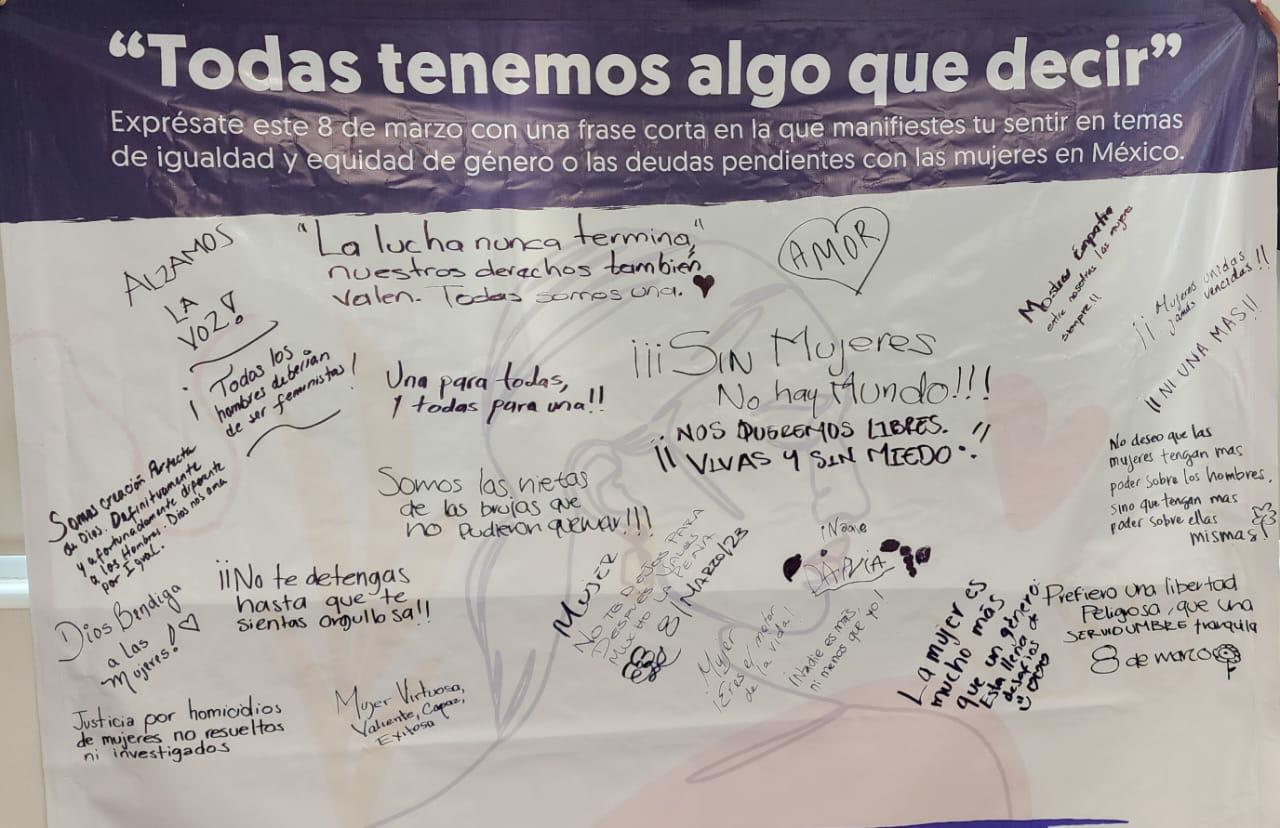 “Todas tenemos algo que decir”
Exprésate este 8 de marzo con una frase corta en la que manifiestes tu sentir en temas
de igualdad y equidad de género o las deudas pendientes con las mujeres en México.
ALZAMOS
LA
VOZ!
"La lucha nunca termina,"
nuestros derechos también
valen. Todas somos una.
AMOR
Mostrar Empatía
entre nosotras las mujeres
siempre!!
¡¡ Mujeres unidas
jamás vencidas!!
¡¡ NI UNA MAS!!
¡ Todos los
hombres deberían
de ser feministas!
Una para todas,
y todas para una!!
¡¡¡SIN Mujeres
No hay Mundo!!!
¡¡ NOS QUEREMOS LIBRES.
VIVAS Y SIN MIEDO !!
No deseo que las
mujeres tengan mas
poder sobre los hombres,
sino que tengan mas
poder sobre ellas
mismas!
Somos creación Perfecta
de Dios. Definitivamente
y afortunadamente diferente
a los Hombres. Dios nos ama
por Igual.
Somos las nietas
de las brujas que
no pudieron quemar!!!
¡¡No te detengas
hasta que te
sientas orgullosa!!
MUJER
NO TE DEJES PARA
DESPUES VALES
MUXHO LA PENA
8/MARZO/23
Dios Bendiga
a las
Mujeres!
Mujer
¡Eres el motor
de la vida!
¡Nadie es más,
ni menos que yo!
La mujer es
mucho más
que un género.
Esta llena de
desafios
Prefiero una libertad
Peligosa, que una
SERVIDUMBRE tranquila
8 de marzo
Justicia por homicidios
de mujeres no resueltos
ni investigados
Mujer Virtuosa,
Valiente, Capaz,
Exitosa